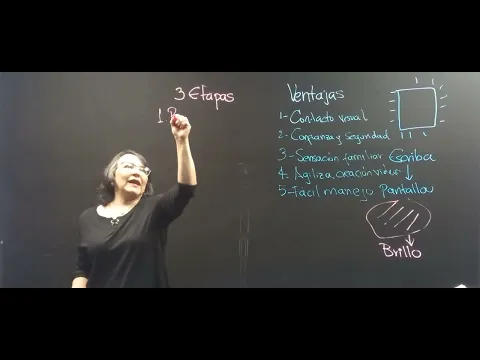 3 Etapas
1
Ventajas
1- Contacto visual
2- Confianza y Seguridad
3- Sensación familiar
4- Agiliza creación videos
5- Fácil manejo
Escriba
Pantalla
Brillo